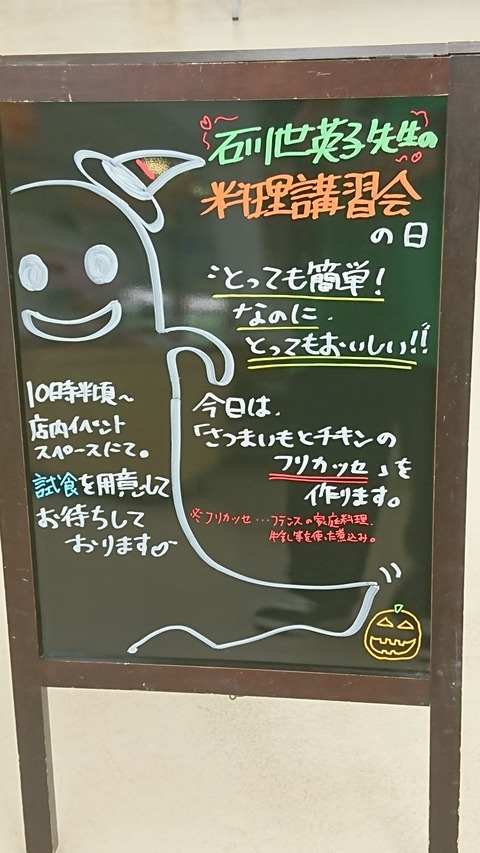 石川世英子先生の
料理講習会
の日
とっても簡単!
なのに
とってもおいしい!!
今日は、
「さつまいもとチキンの
フリカッセ」を
作ります。
※フリカッセ…フランスの家庭料理、
を使った煮込み。
10時半頃〜
店内イベント
スペースにて。
試食を用意して
お待ちして
おります